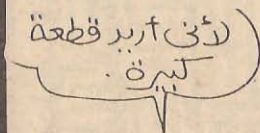 لأنى أريد قطعة
كبيرة .